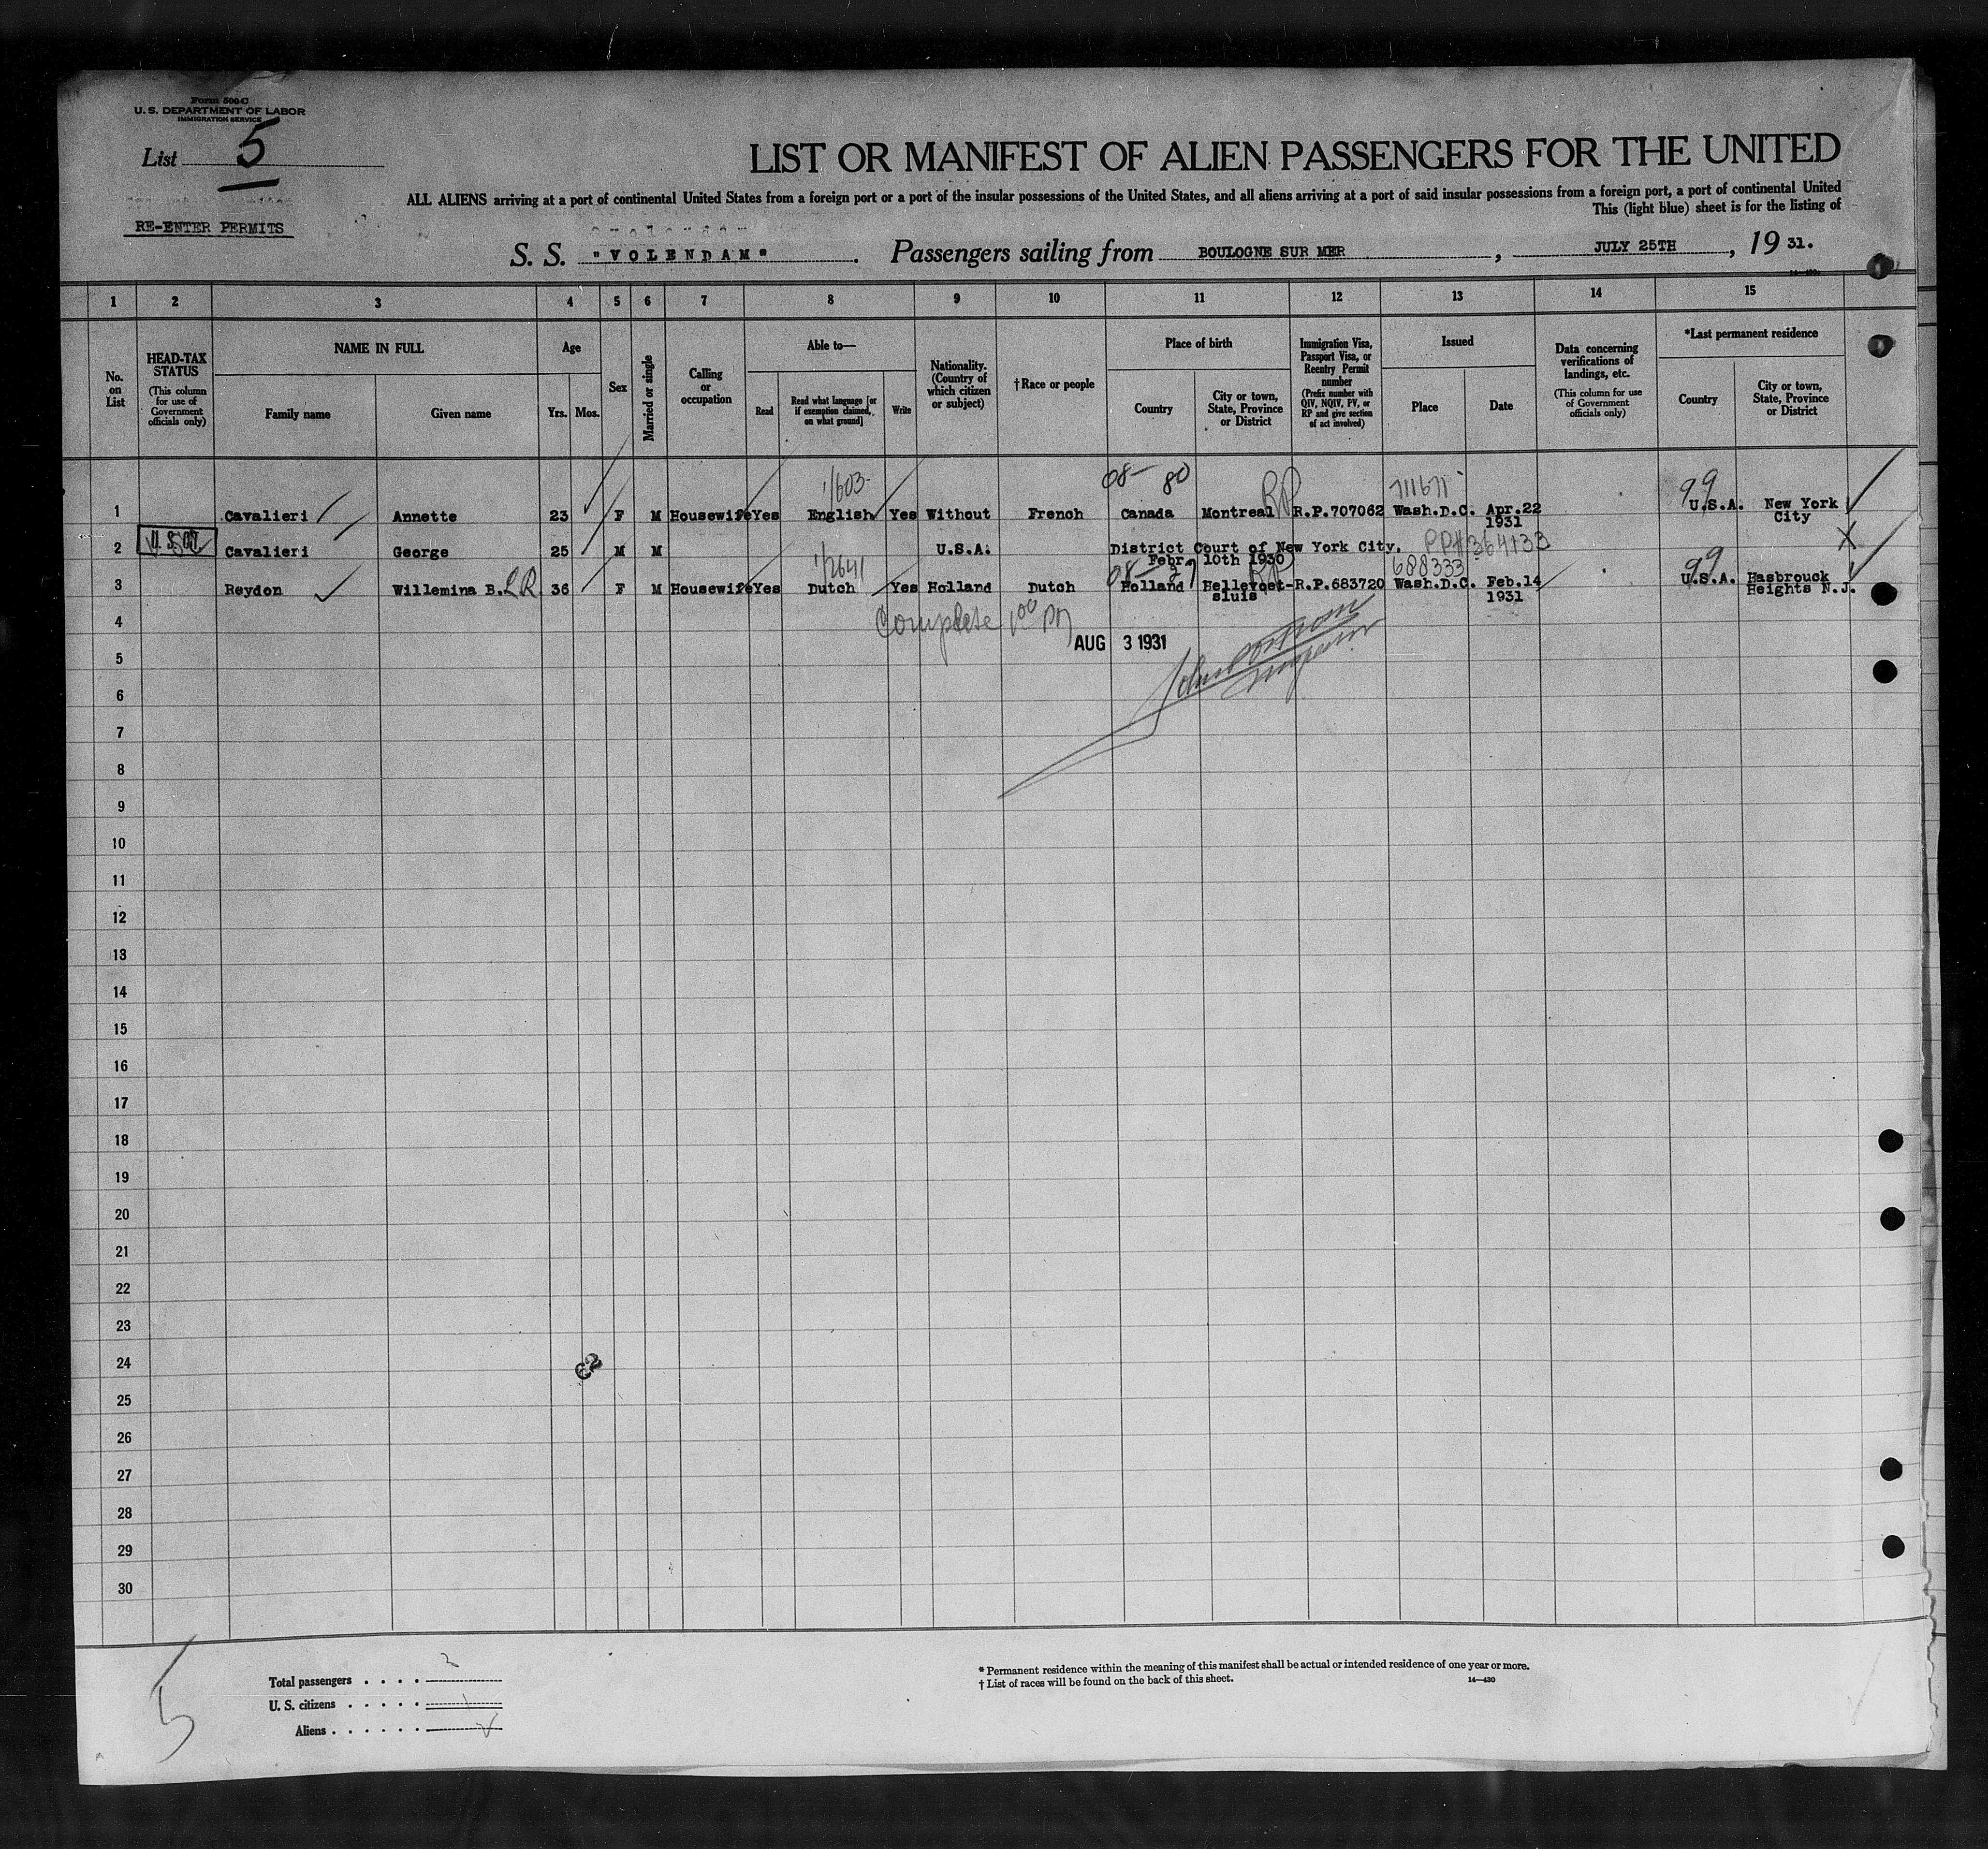 Form 500-C
U. S. DEPARTMENT OF LABOR
IMMIGRATION SERVICE
List 5
RE-ENTER PERMITS
LIST OR MANIFEST OF ALIEN PASSENGERS FOR THE UNITED
ALL ALIENS arriving at a port of continental United States from a foreign port or a port of the insular possessions of the United States, and all aliens arriving at a port of said insular possessions from a foreign port, a port of continental United
This (light blue) sheet is for the listing of
S. S. "VOLENDAM". Passengers sailing from BOULOGNE SUR MER, JULY 25TH, 1931.
1 2 3 4 5 6 7 8 9 10 11 12 13 14 15
No. on List
HEAD-TAX STATUS (This column for use of Government officials only)
NAME IN FULL
Family name
Given name
Age
Yrs. Mos.
Sex
Married or single
Calling or occupation
Able to—
Read
Read what language [or if exemption claimed, on what ground]
Write
Nationality. (Country of which citizen or subject)
† Race or people
Place of birth
Country
City or town, State, Province or District
Immigration Visa, Passport Visa, or Reentry Permit number (Prefix number with QIV, NQIV, PV, or RP and give section of act involved)
Issued
Place
Date
Data concerning verifications of landings, etc. (This column for use of Government officials only)
*Last permanent residence
Country
City or town, State, Province or District
1/603- 08- 80 RP 711671 99
1 Cavalieri Annette 23 F M Housewife Yes English Yes Without French Canada Montreal R.P.707062 Wash.D.C. Apr.22 1931 U.S.A. New York City
2 Cavalieri George 25 M M U.S.A. District Court of New York City. Febr. 10th 1930 PP#364133
1/2641 08- 27 RP 688333 99
3 Reydon Willemina B. LR 36 F M Housewife Yes Dutch Yes Holland Dutch Holland Hellevoet-sluis R.P.683720 Wash.D.C. Feb.14 1931 U.S.A. Hasbrouck Heights N.J.
4 Complete
AUG 3 1931
5
6
7
8
9
10
11
12
13
14
15
16
17
18
19
20
21
22
23
24
62
25
26
27
28
29
30
5
Total passengers . . . . 2
U. S. citizens . . . . . 1
Aliens . . . . . .
* Permanent residence within the meaning of this manifest shall be actual or intended residence of one year or more.
† List of races will be found on the back of this sheet.
14—430